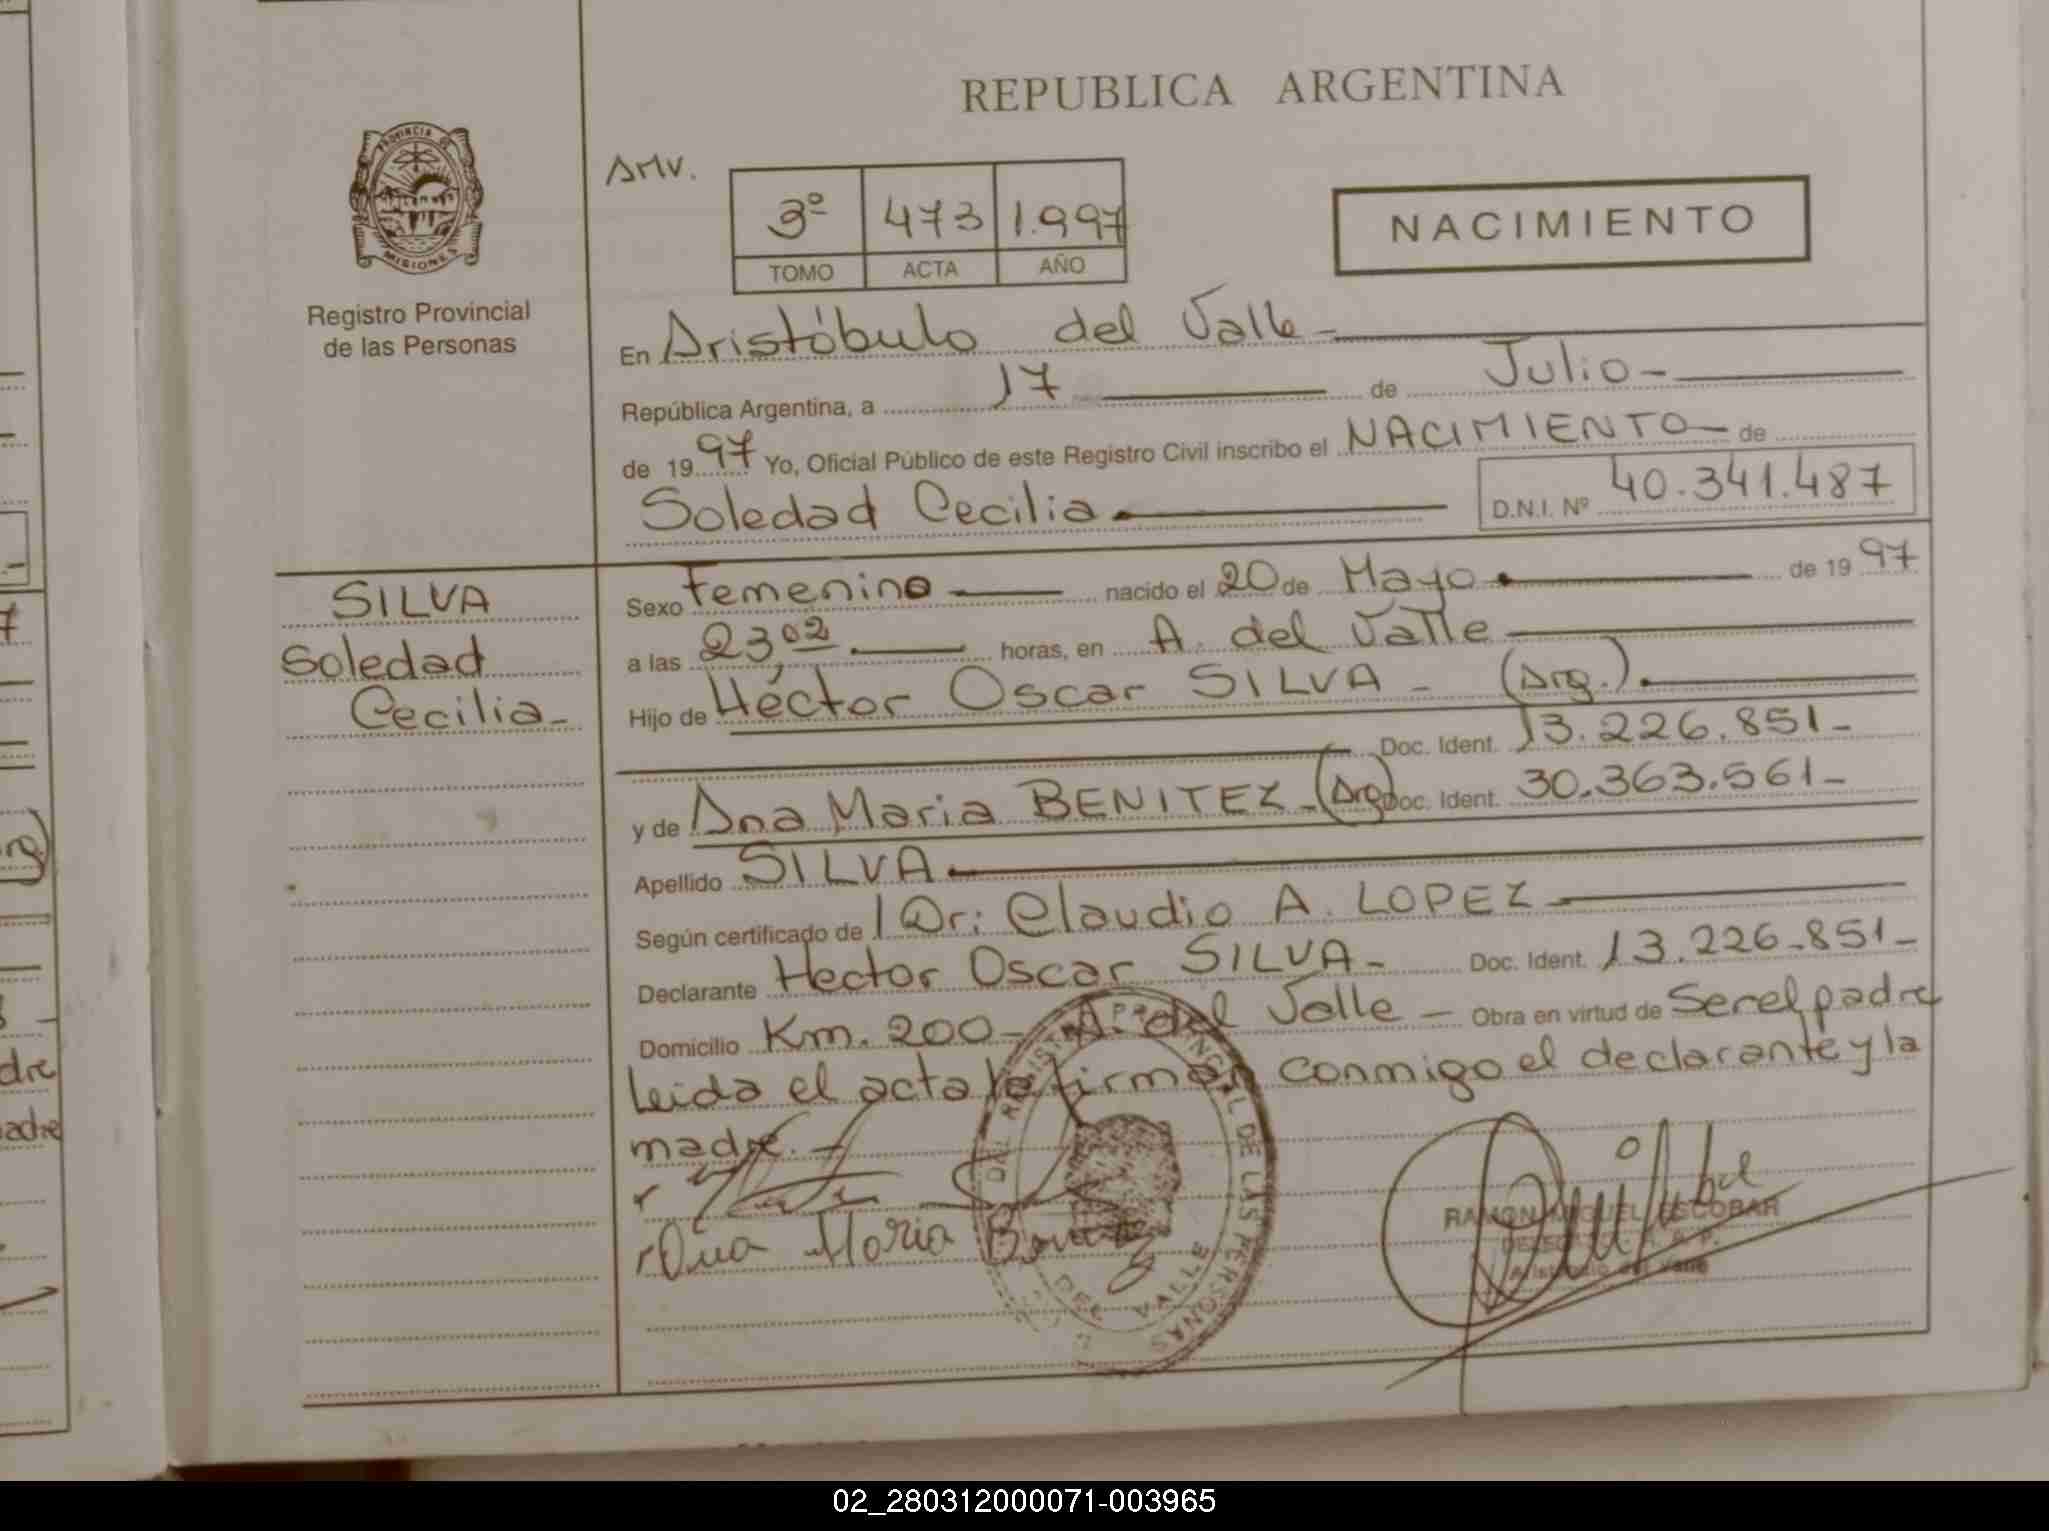 REPUBLICA ARGENTINA
PROVINCIA DE
MISIONES
Registro Provincial
de las Personas
AMV.
3º 473 1.997
TOMO ACTA AÑO
NACIMIENTO
En Aristóbulo del Valle -
República Argentina, a 17 de Julio -
de 1997 Yo, Oficial Público de este Registro Civil inscribo el NACIMIENTO - de
Soledad Cecilia
D.N.I. Nº 40.341.487
SILVA
Soledad
Cecilia -
Sexo Femenino nacido el 20 de Mayo de 1997
a las 23,02 horas, en A. del Valle
Hijo de Héctor Oscar SILVA - (Arg.)
Doc. Ident. 13.226.851 -
y de Ana Maria BENITEZ - (Arg) Doc. Ident. 30.363.561 -
Apellido SILVA
Según certificado de Dr: Claudio A. LOPEZ
Declarante Hector Oscar SILVA - Doc. Ident. 13.226.851 -
Domicilio Km. 200 - A. del Valle - Obra en virtud de Ser el padre
leida el acta la firman conmigo el declarante y la
madre. -
Ana Maria
DEL REGISTRO PROVINCIAL DE LAS PERSONAS
DEL VALLE
RAMON MIGUEL ESCOBAR
Aristóbulo del Valle
rg)
dre
padre
02_280312000071-003965